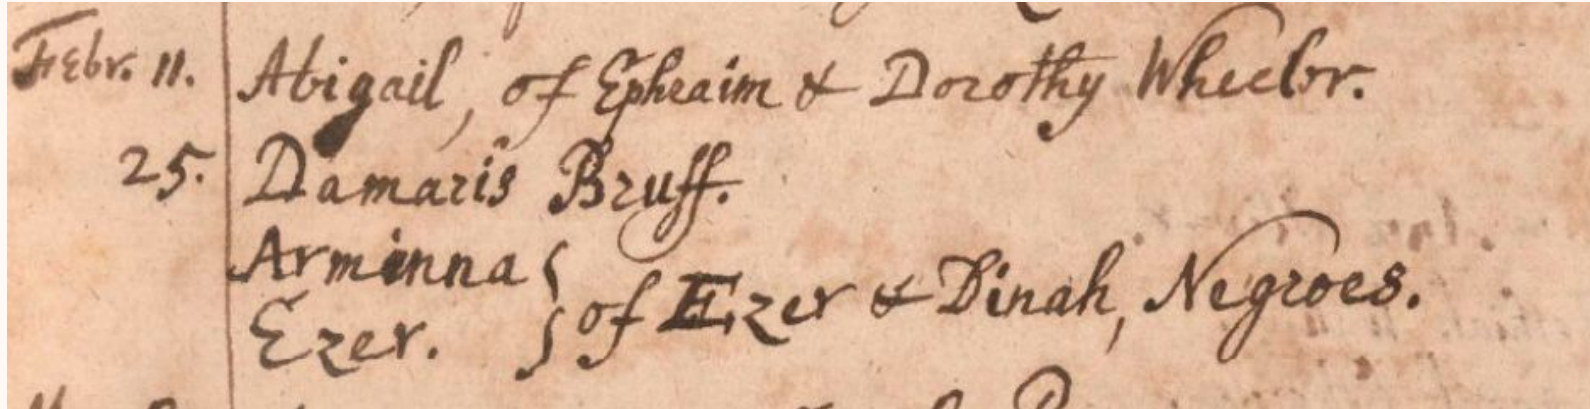 Febr. 11. Abigail, of Ephraim & Dorothy Wheeler.
25. Damaris Bruff.
Arminna }
Ezer. } of Ezer & Dinah, Negroes.